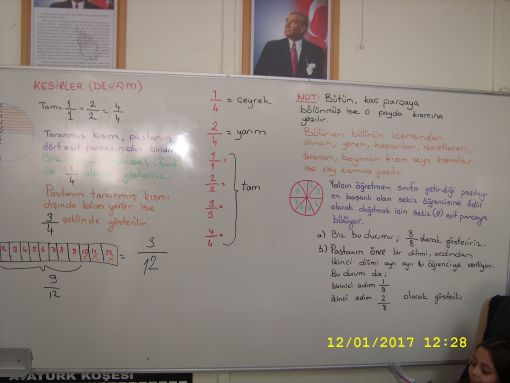 KESİRLER (DEVAM)
Tam = 1/1 = 2/2 = 4/4
Taranmış kısım, pastanın
dört eşit parçasından biridir.
Biz
ile 1/4 olarak gösteririz.
Pastanın taranmış kısmı
dışında kalan yerler ise
3/4 şeklinde gösterilir.
2 3 4 5 6 7 8 9 10 11 12 = 3/12
9/12
1/4 = çeyrek
2/4 = yarım
1/1 =
2/2 =
3/3 =
4/4 =
tam
NOT: Bütün, kaç parçaya
bölünmüş ise o payda kısmına
yazılır.
Bölünen bütünün içerisinden
alınan, yenen, kapacılan, işaretlenen,
taranan, boyanan kısım veya kısımlar
ise pay kısmına yazılır.
Yalçın öğretmen sınıfa getirdiği pastayı
en başarılı olan sekiz öğrencisine ödül
olarak dağıtmak için sekiz (8) eşit parçaya
bölüyor.
a) Biz bu durumu; 8/8 olarak gösteririz.
b) Pastanın önce bir dilimi, ardından
ikinci dilimi ayrı ayrı iki öğrenciye veriliyor.
Bu durum da;
birinci adım 1/8
ikinci adım 2/8 olarak gösterilir.
12/01/2017 12:28
ATATÜRK KÖŞESİ